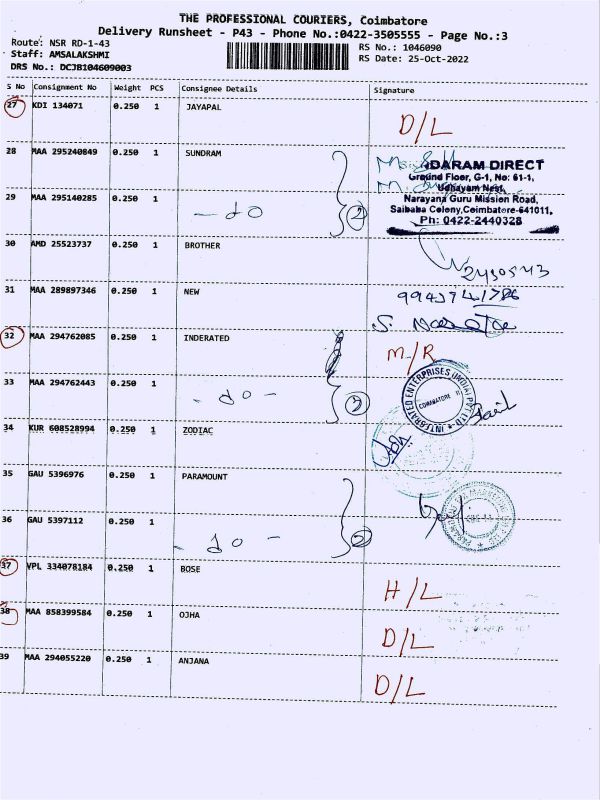 THE PROFESSIONAL COURIERS, Coimbatore
Delivery Runsheet - P43 - Phone No.:0422-3505555 - Page No.:3
Route: NSR RD-1-43
RS No.: 1046090
Staff: AMSALAKSHMI
RS Date: 25-Oct-2022
DRS No.: DCJB104609003
S No Consignment No Weight PCS Consignee Details Signature
27 KDI 134071 0.250 1 JAYAPAL
D/L
28 MAA 295240849 0.250 1 SUNDRAM
DARAM DIRECT
Ground Floor, G-1, No: 61-1,
Udhayam Nest,
Narayana Guru Mission Road,
Saibaba Colony, Coimbatore-641011,
Ph: 0422-2440328
29 MAA 295140285 0.250 1 - do 2
30 AMD 25523737 0.250 1 BROTHER
2430543
31 MAA 289897346 0.250 1 NEW
32 MAA 294762085 0.250 1 INDERATED
M/R
33 MAA 294762443 0.250 1 - do -
INTEGRATED ENTERPRISES (INDIA) PVT LTD
COIMBATORE
34 KUR 608528994 0.250 1 ZODIAC
35 GAU 5396976 0.250 1 PARAMOUNT
36 GAU 5397112 0.250 1 - do - 2
37 VPL 334078184 0.250 1 BOSE
H/L
38 MAA 858399584 0.250 1 OJHA
D/L
39 MAA 294055220 0.250 1 ANJANA
D/L